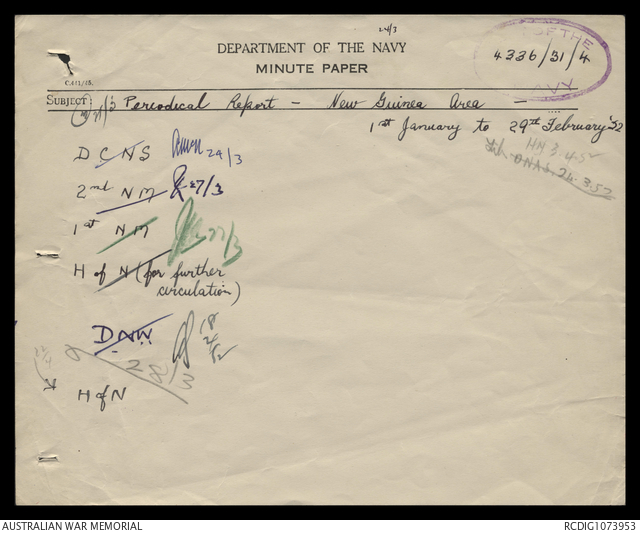 24/3
DEPARTMENT OF THE NAVY
MINUTE PAPER
OF THE
4336/31/4
NAVY
C.441/45.
SUBJECT: Periodical Report - New Guinea Area -
1st January to 29th February '52
HN 3.4.52
DNAS. 26.3.52
DCNS 24/3
2nd NM 27/3
1st NM 27/3
H of N (for further
circulation)
DNW 18/4/52
28/3
H of N
AUSTRALIAN WAR MEMORIAL
RCDIG1073953